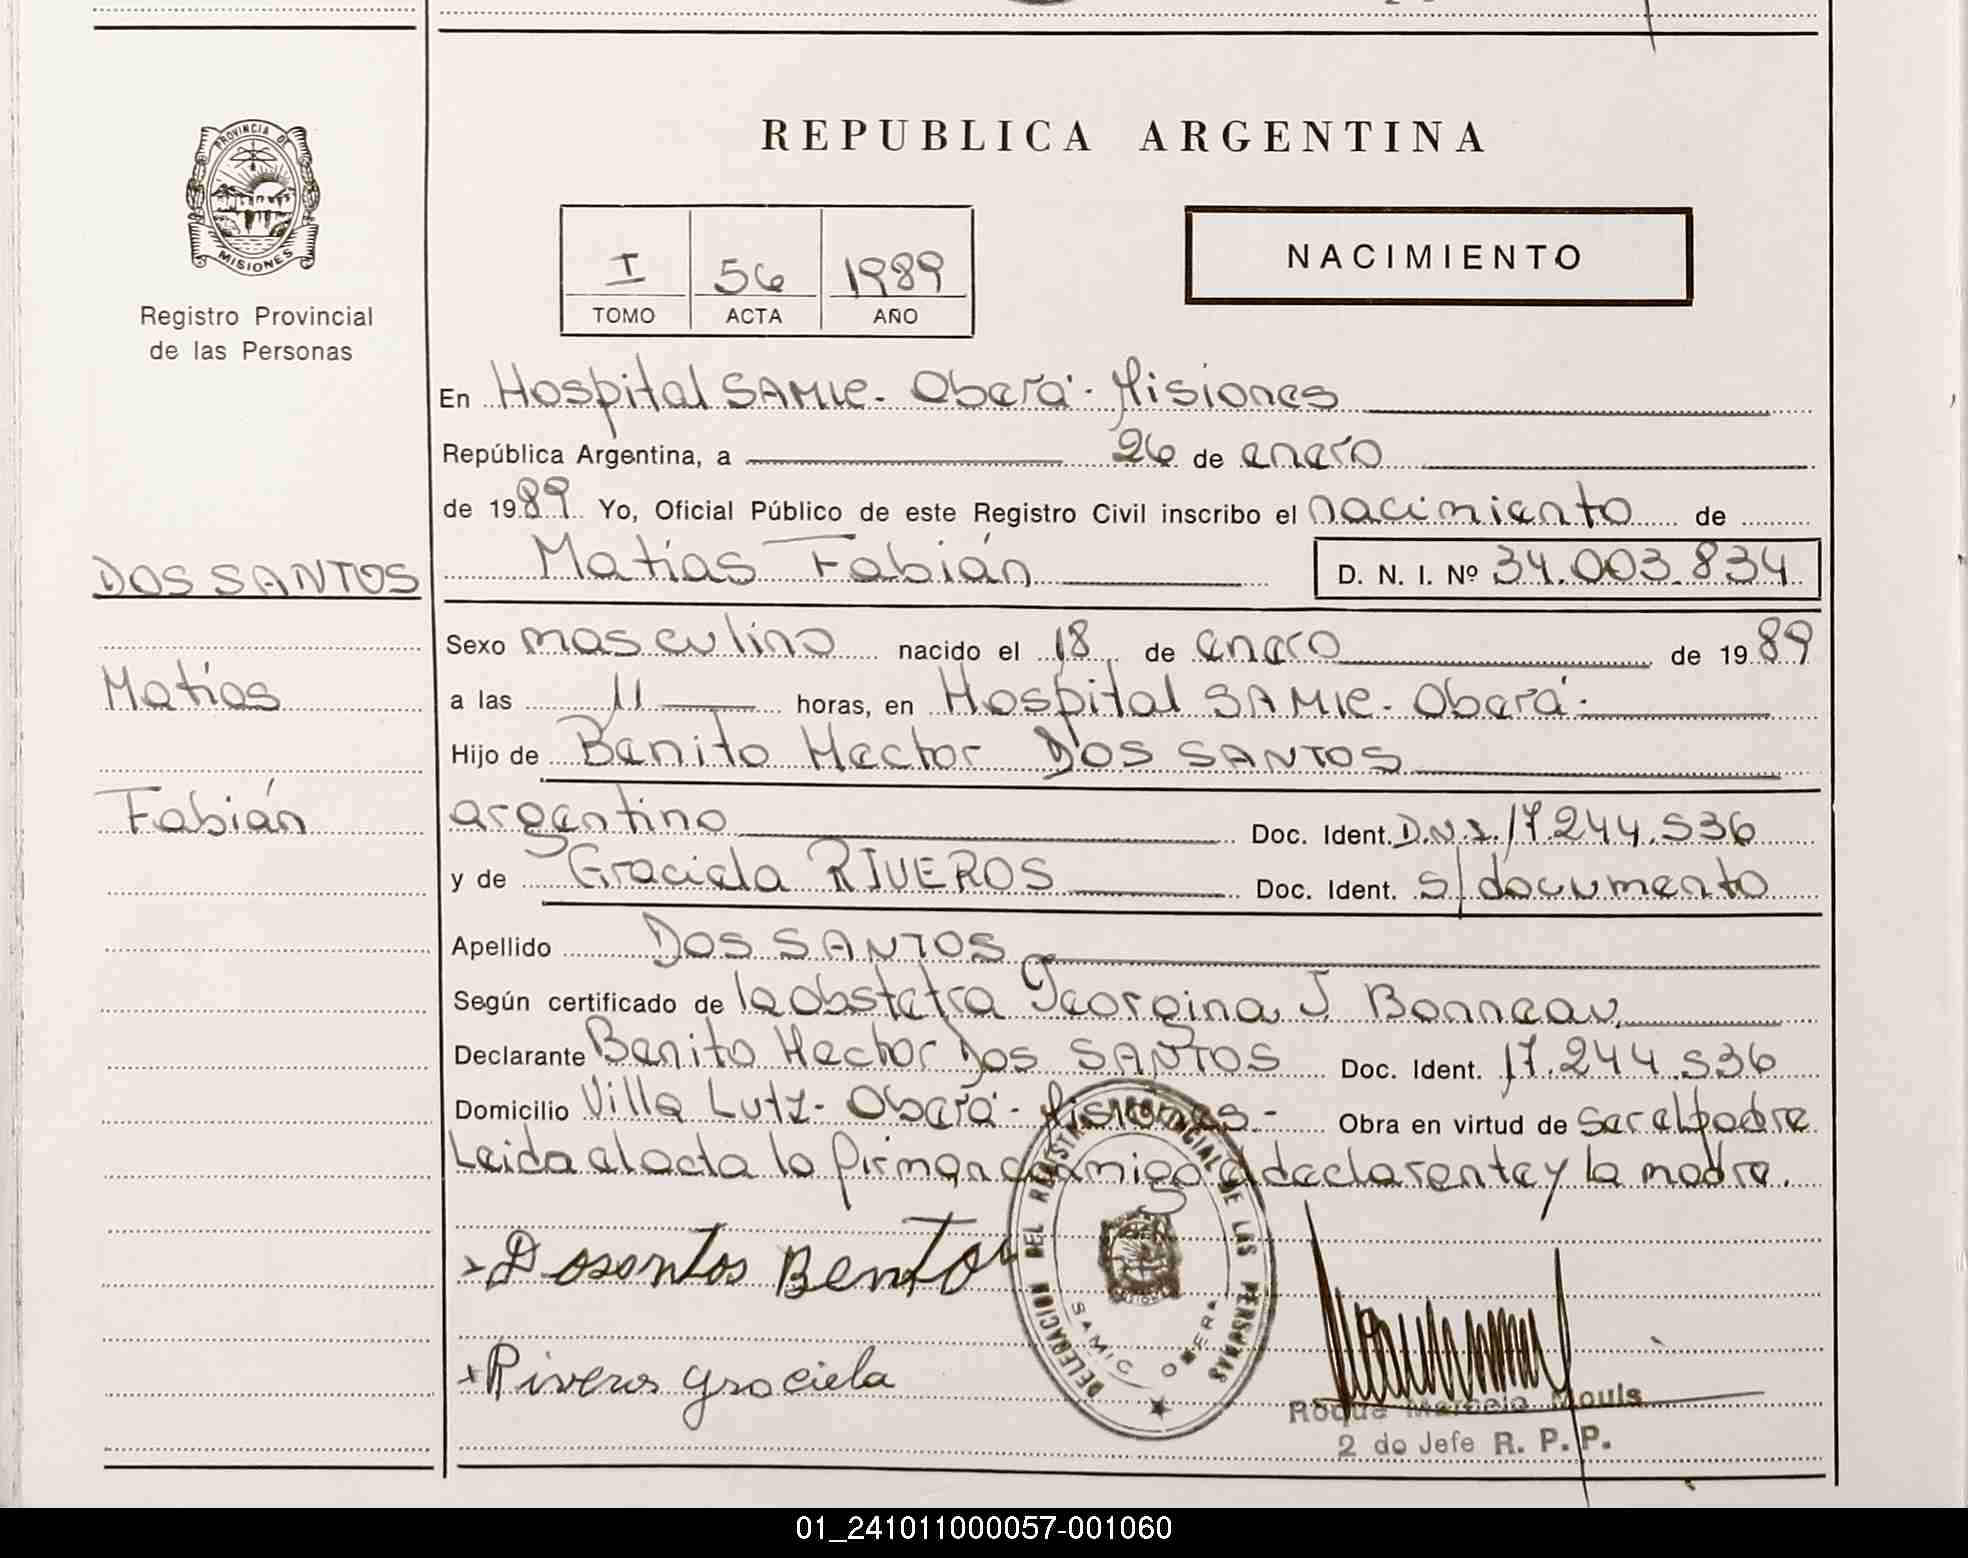 PROVINCIA DE
MISIONES
Registro Provincial
de las Personas
DOS SANTOS
Matías
Fabián
REPUBLICA ARGENTINA
I 56 1989
TOMO ACTA AÑO
NACIMIENTO
En Hospital SAMIC - Oberá - Misiones
República Argentina, a 26 de enero
de 1989 Yo, Oficial Público de este Registro Civil inscribo el nacimiento de
Matías Fabián D. N. I. Nº 34.003.834
Sexo masculino nacido el 18 de enero de 1989
a las 11 horas, en Hospital SAMIC - Oberá -
Hijo de Benito Hector DOS SANTOS
argentino Doc. Ident. D.N.I. 17.244.536
y de Graciela RIVEROS Doc. Ident. s/documento
Apellido DOS SANTOS
Según certificado de la obstetra Georgina J. Bonneau
Declarante Benito Hector Dos SANTOS Doc. Ident. 17.244.536
Domicilio Villa Lutz - Oberá - Misiones - Obra en virtud de ser el padre
Leida el acta la firman conmigo el declarante y la madre.
x Dosantos Benito
x Riveros graciela
DELEGACION DEL REGISTRO PROVINCIAL DE LAS PERSONAS
SAMIC OBERA
Roque Marcelo Mouls
2 do Jefe R. P. P.
01_241011000057-001060